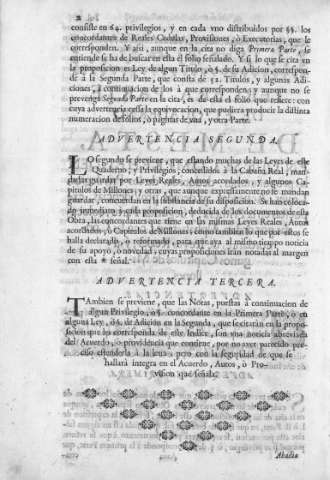 2
consiste en 64. privilegios, y en cada vno distribuidos por §§. los
concordantes de Reales Cedulas, Provisiones, ò Executorias, que le
corresponden. Y assi, aunque en la cita no diga Primera Parte, se
entiende se ha de buscar en esta el folio señalado. Y si lo que se cita en
la proposicion es Ley de algun Titulo, ò §. de su Adicion, correspon-
de à la Segunda Parte, que consta de 52. Titulos, y algunas Adi-
ciones, à continuacion de los à que corresponden; y aunque no se
prevenga Segunda Parte en la cita, es de esta el folio que refiere: con
cuya advertencia cessa la equivocacion, que pudiera producir la distinta
numeracion de folios, ò paginas de vna, y otra Parte.
ADVERTENCIA SEGUNDA.
LO segundo se previene, que estando muchas de las Leyes de este
Quaderno, y Privilegios, concedidos à la Cabaña Real, man-
dadas guardar por Leyes Reales, Autos acordados, y algunos Ca-
pitulos de Millones; y otras, que aunque expressamente no se mandan
guardar, concuerdan en la substancia de su disposicion. Se han coloca-
do inmediato à cada proposicion, deducida de los documentos de esta
Obra, las concordantes que tiene en las mismas Leyes Reales, Autos
acordados, ò Capitulos de Millones; como tambien lo que por estos se
halla declarado, ò reformado, para que aya al mismo tiempo noticia
de su apoyo, ò novedad; cuyas proposiciones iràn notadas al margen
con esta * señal.
ADVERTENCIA TERCERA.
TAmbien se previene, que las Notas, puestas à continuacion de
algun Privilegio, ò §. concordante en la Primera Parte, ò en
alguna Ley, ò §. de Adicion en la Segunda, que se citan en la propo-
sicion que les corresponda de este Indice, son vna noticia abreviada
del Acuerdo, ò providencia que contiene, por no aver parecido pre-
ciso estenderla à la letra; pero con la seguridad de que se
hallarà integra en el Acuerdo, Autos, ò Pro-
vision que señala.
Abadia